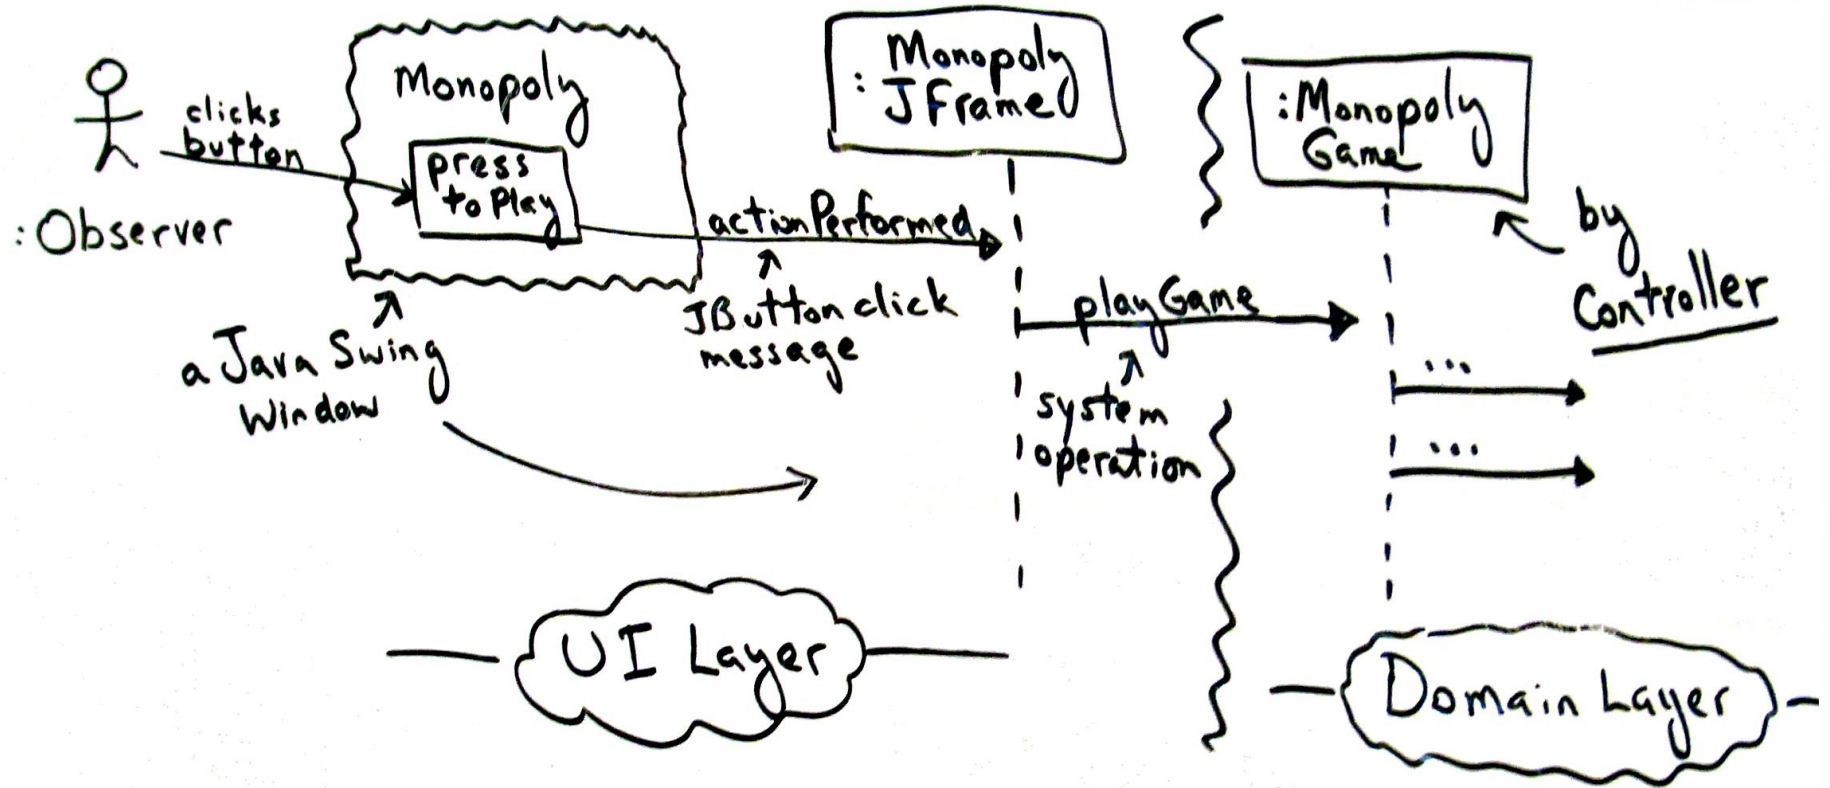 clicks
button
:Observer
Monopoly
press
to Play
a Java Swing
Window
Monopoly
: JFrame
actionPerformed
JButton click
message
playGame
system
operation
:Monopoly
Game
by
Controller
...
...
UI Layer
Domain Layer